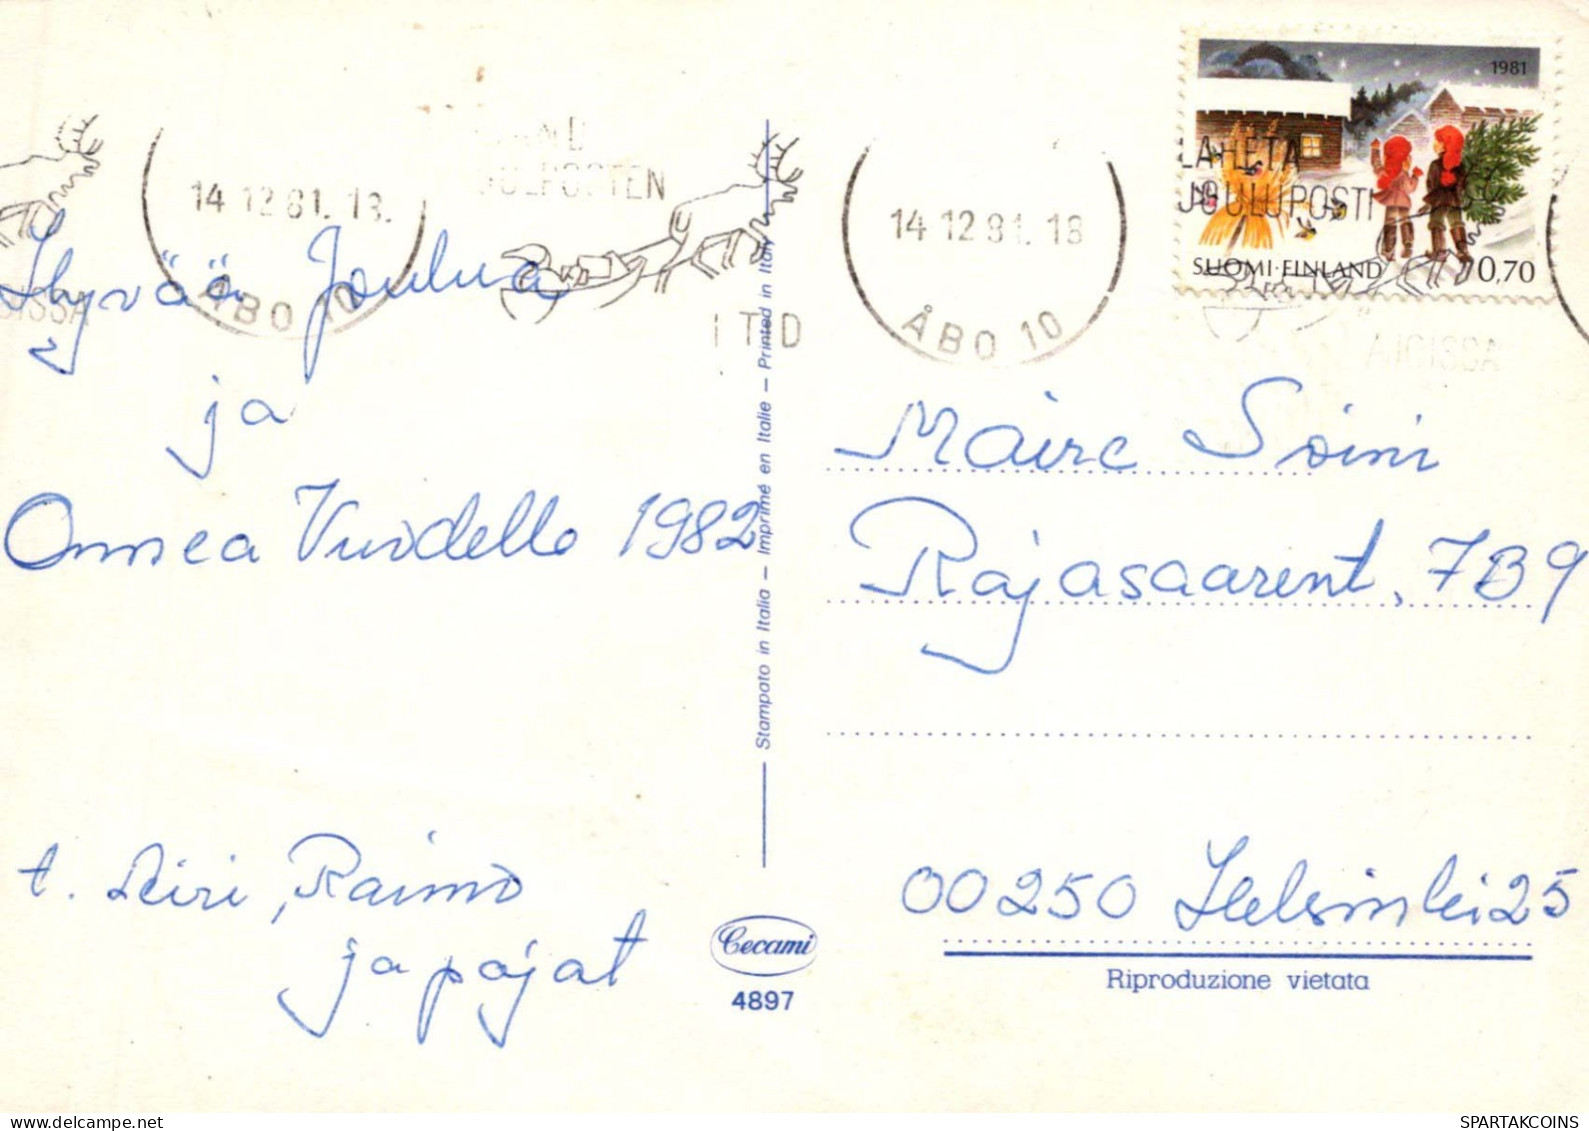 1981
LÄHETÄ
JOULUPOSTI
SUOMI·FINLAND 0,70
AND
JULPOSTEN
I TID
AJOISSA
14.12.81.18
ÅBO 10
14.12.81.18
ÅBO 10
Hyvää Joulua
ja
Onnea Vuodelle 1982
t. Siiri, Raimo
ja pojat
Stampato in Italia – Imprimé en Italie – Printed in Italy
Cecami
4897
Maire Soini
Rajasaarent. 7B9
00250 Helsinki 25
Riproduzione vietata
eustan55
SPARTAKCOINS